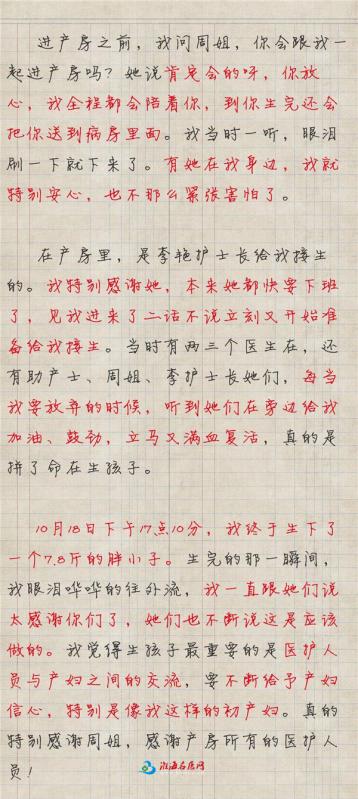 进产房之前，我问周姐，你会跟我一
起进产房吗？她说肯定会的呀，你放
心，我全程都会陪着你，到你生完还会
把你送到病房里面。我当时一听，眼泪
刷一下就下来了。有她在我身边，我就
特别安心，也不那么紧张害怕了。
在产房里，是李艳护士长给我接生
的。我特别感谢她，本来她都快要下班
了，见我进来了二话不说立刻又开始准
备给我接生。当时有两三个医生在，还
有助产士、周姐、李护士长她们，每当
我要放弃的时候，听到她们在旁边给我
加油、鼓劲，立马又满血复活，真的是
拼了命在生孩子。
10月18日下午17点10分，我终于生下了
一个7.8斤的胖小子。生完的那一瞬间，
我眼泪哗哗的往外流，我一直跟她们说
太感谢你们了，她们也不断说这是应该
做的。我觉得生孩子最重要的是医护人
员与产妇之间的交流，要不断给予产妇
信心，特别是像我这样的初产妇。真的
特别感谢周姐，感谢产房所有的医护人
员！
淮海名医网